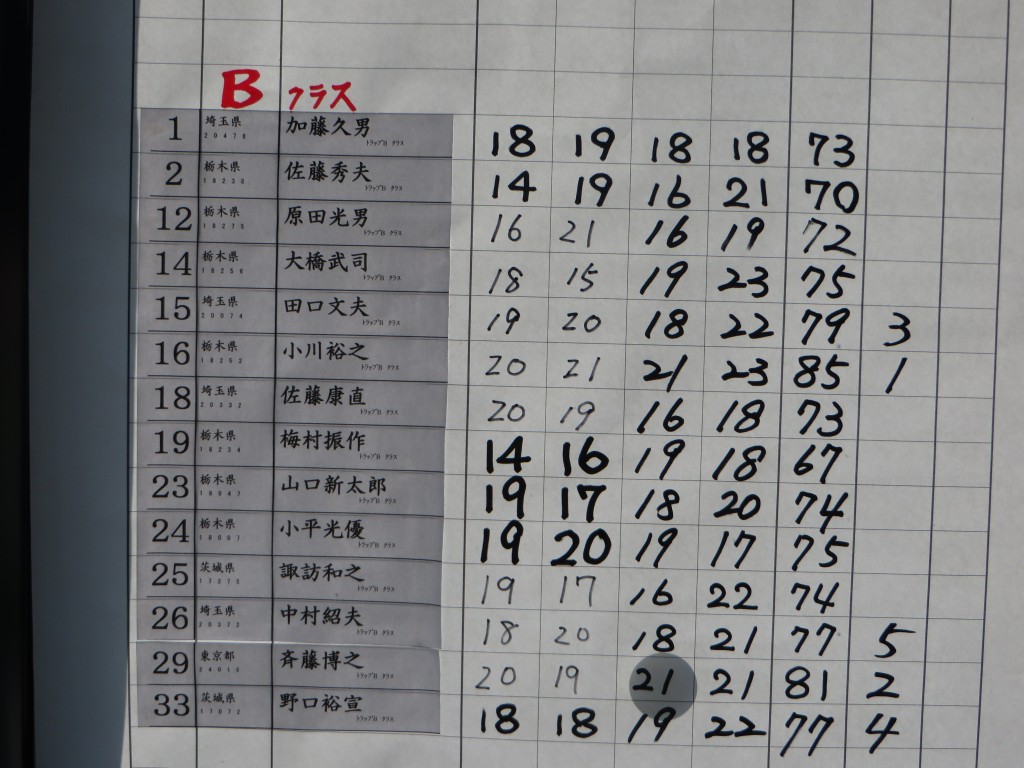 B クラス
1 埼玉県 加藤久男 18 19 18 18 73
トラップB クラス
2 栃木県 佐藤秀夫 14 19 16 21 70
トラップB クラス
12 栃木県 原田光男 16 21 16 19 72
トラップB クラス
14 栃木県 大橋武司 18 15 19 23 75
トラップB クラス
15 埼玉県 田口文夫 19 20 18 22 79 3
トラップB クラス
16 栃木県 小川裕之 20 21 21 23 85 1
トラップB クラス
18 埼玉県 佐藤康直 20 19 16 18 73
トラップB クラス
19 栃木県 梅村振作 14 16 19 18 67
トラップB クラス
23 栃木県 山口新太郎 19 17 18 20 74
トラップB クラス
24 栃木県 小平光優 19 20 19 17 75
トラップB クラス
25 茨城県 諏訪和之 19 17 16 22 74
トラップB クラス
26 埼玉県 中村紹夫 18 20 18 21 77 5
トラップB クラス
29 東京都 斉藤博之 20 19 21 21 81 2
トラップB クラス
33 茨城県 野口裕宣 18 18 19 22 77 4
トラップB クラス